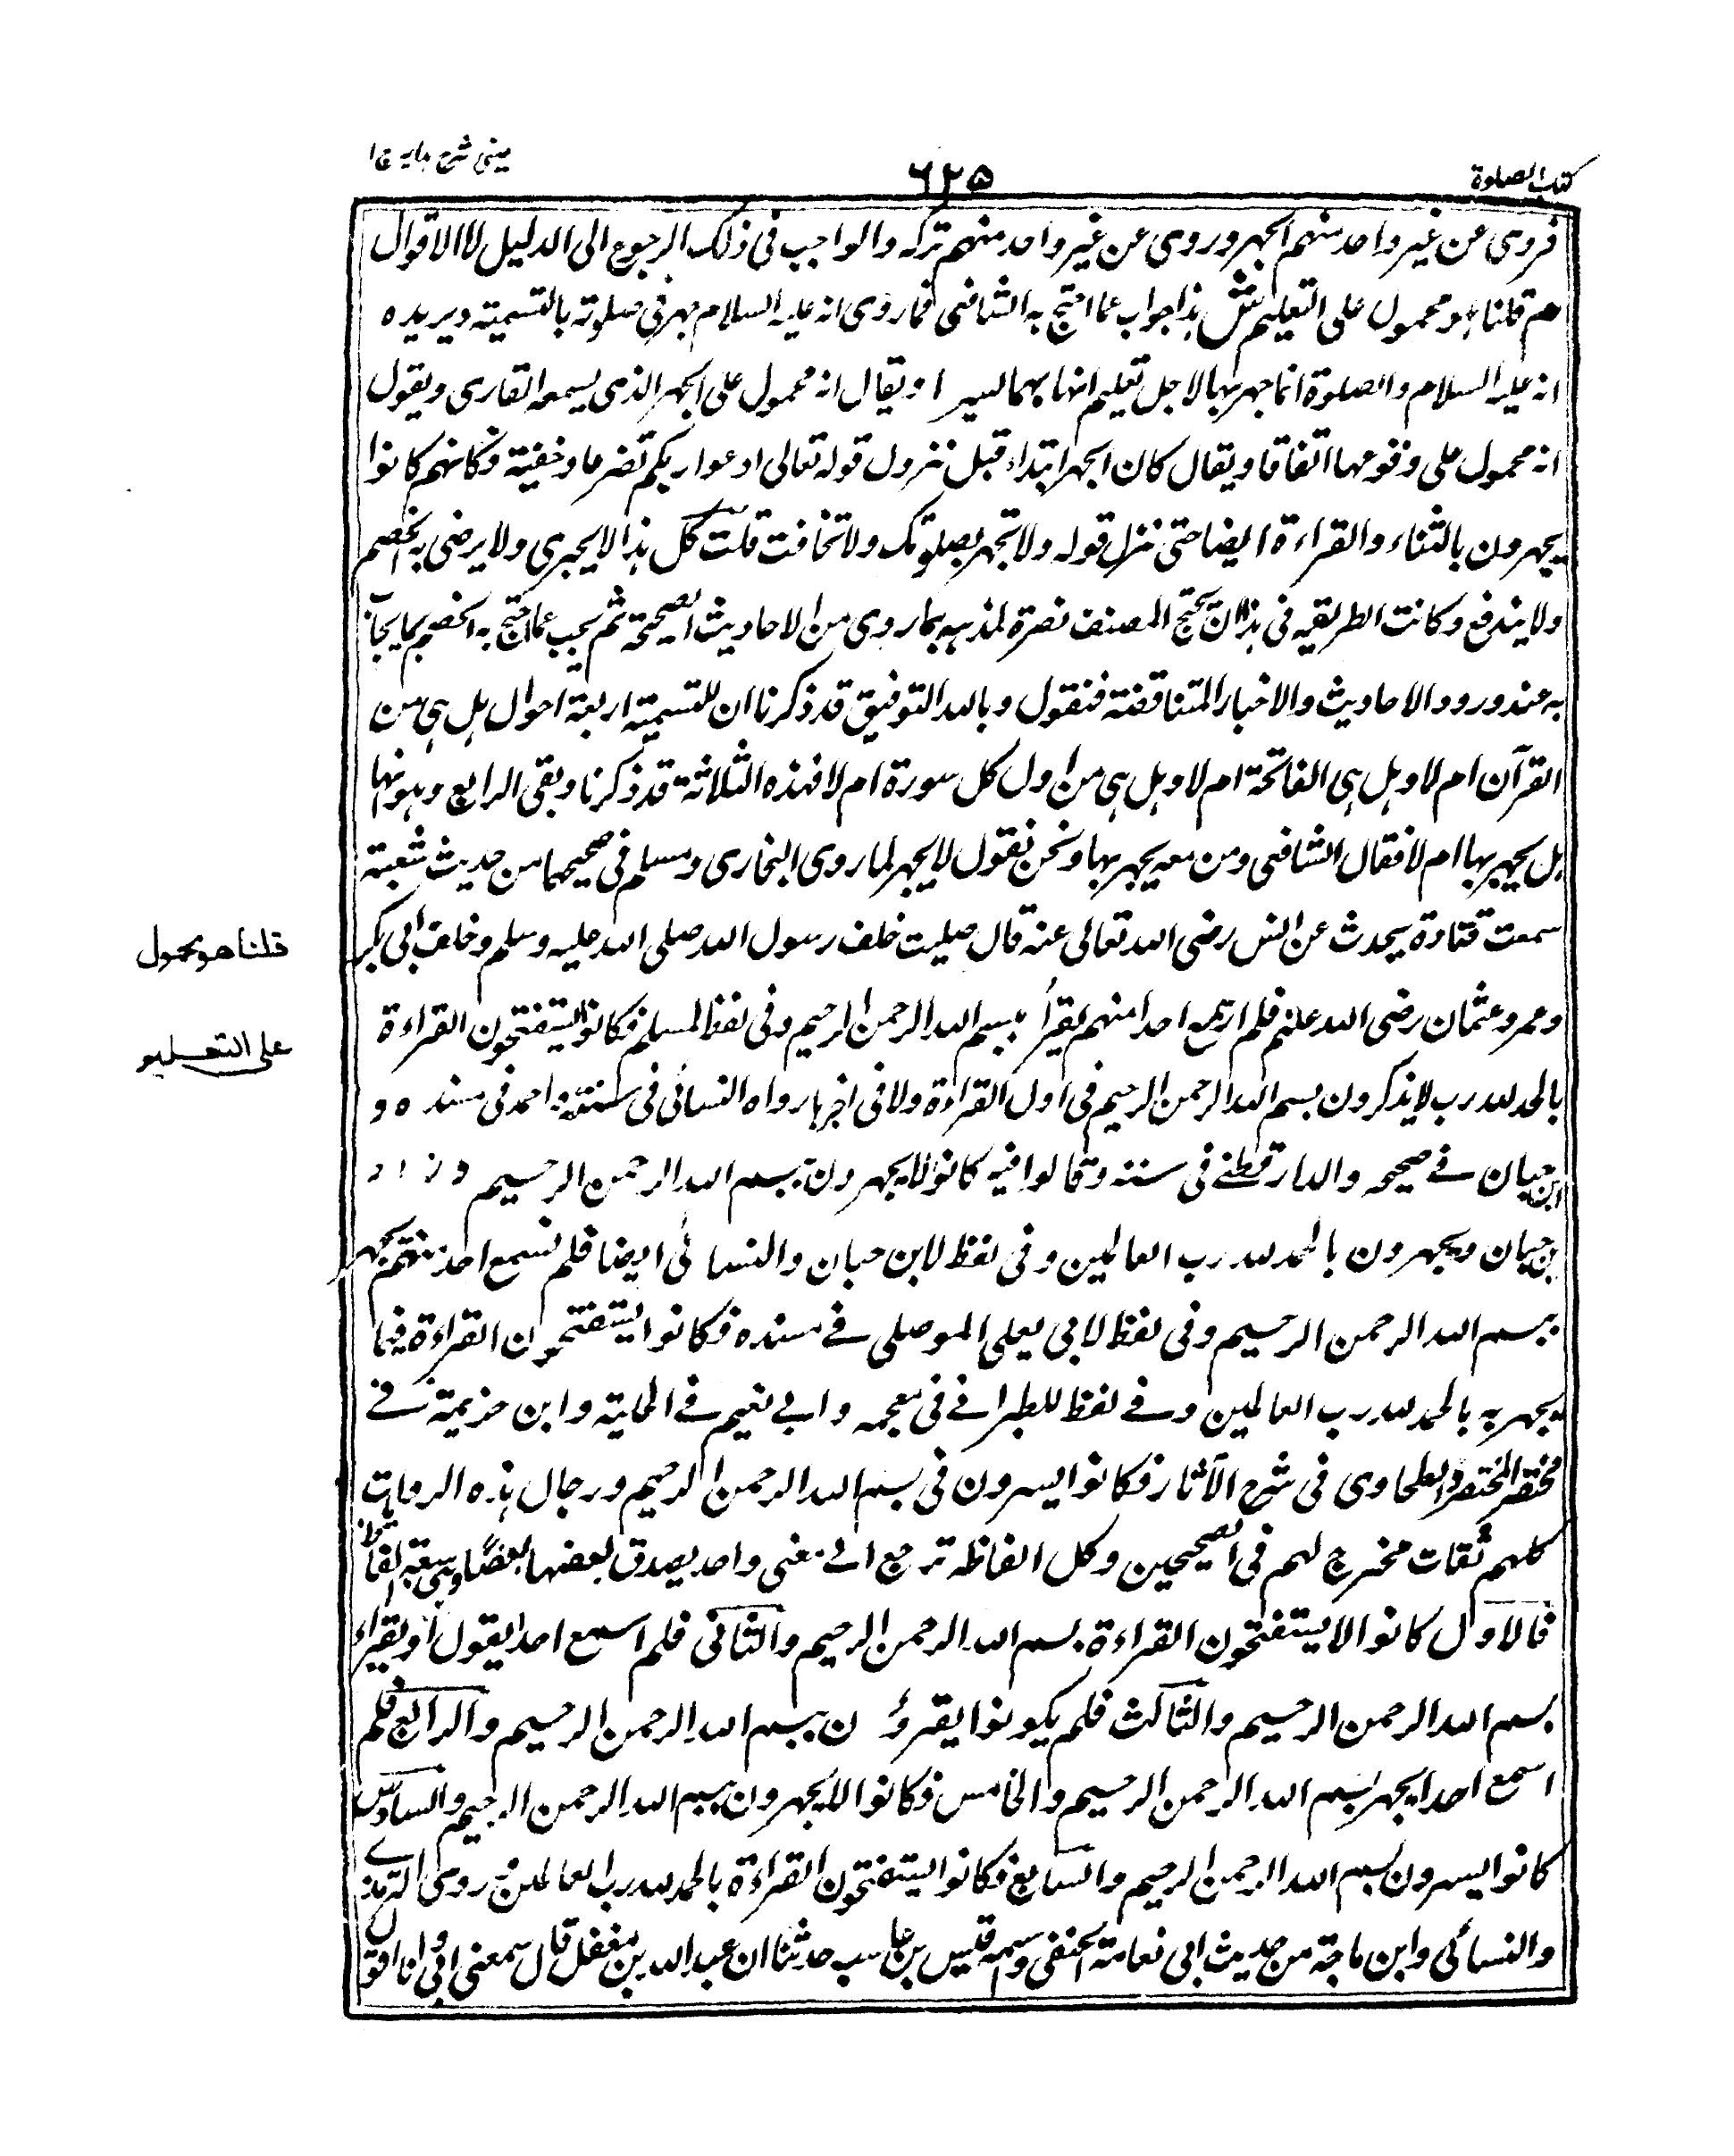 كتاب الصلوة
٦٢٥
عینی شرح ہدایہ ج ا
فروى عن غير واحد منهم الجهر وروى عن غير واحد منهم تركه والواجب فى ذلك الرجوع الى الدليل لا الاقوال
هم قلنا هو محمول على التعليم ش هذا جواب عما احتج به الشافعى فما روى انه عليه السلام جهر فى صلوته بالتسمية ويريده
انه عليه السلام والصلوة انما جهر بها لاجل تعليم انها بهما ليسر او يقال انه محمول على الجهر الذى يسمعه القارى ويقول
انه محمول على وقوعها اتفاقا ويقال كان الجهر ابتداء قبل نزول قوله تعالى ادعوا ربكم تضرعا وخفية فكانهم كانوا
يجهرون بالثناء والقراءة ايضا حتى نزل قوله ولا تجهر بصلوتك ولا تخافت قلت كل هذا لا يجرى ولا يرضى به الخصم
ولا يندفع وكانت الطريقه فى هذا ان يحتج المصنف نصرة لمذهبه بما روى من الاحاديث الصحيحة ثم يجيب عما احتج به الخصم بما يجاب
به عند ورود الاحاديث والاخبار المتناقضة فنقول وبالله التوفيق قد ذكرنا ان للتسمية اربعة احوال هل هى من
القرآن ام لا وهل هى الفاتحة ام لا وهل هى من اول كل سورة ام لا فهذه الثلاثة قد ذكرنا وبقى الرابع وهو انها
هل يجهر بها ام لا فقال الشافعى ومن معه يجهر بها ونحن نقول لا يجهر لما روى البخارى ومسلم فى صحيحهما من حديث شعبة
سمعت قتادة يحدث عن انس رضى الله تعالى عنه قال صليت خلف رسول الله صلى الله عليه وسلم وخلف ابى بكر
وعمر وعثمان رضى الله عنهم فلم اسمع احدا منهم يقرأ ببسم الله الرحمن الرحيم وفى لفظ لمسلم فكانوا يستفتحون القراءة
بالحمد لله رب لا يذكرون بسم الله الرحمن الرحيم فى اول القراءة ولا فى اخرها رواه النسائى فى سننه واحمد فى مسنده و
ابن حبان فے صحيحه والدارقطنے فى سننه وقالوا فيه كانوا لا يجهرون ببسم الله الرحمن الرحيم وزاد
ابن حبان ويجهرون بالحمد لله رب العالمين وفى لفظ لابن حبان والنسائى ايضا فلم نسمع احدا منهم يجهر
ببسم الله الرحمن الرحيم وفى لفظ لابى يعلى الموصلى فے مسنده فكانوا يستفتحون القراءة فيما
يجهر به بالحمد لله رب العالمين وفے لفظ للطبرانے فى معجمه وابى نعيم فے الحلية وابن خزيمة فے
مختصر المختصر والطحاوى فى شرح الآثار فكانوا يسرون فى بسم الله الرحمن الرحيم ورجال هذه الروايات
كلهم ثقات مخرج لهم فى الصحيحين وكل الفاظه ترجع الى معنى واحد يصدق بعضها بعضا وهى سبعة الفاظ
فالاول كانوا لا يستفتحون القراءة ببسم الله الرحمن الرحيم والثانى فلم اسمع احدا يقول او يقرأ
بسم الله الرحمن الرحيم والثالث فلم يكونوا يقرؤن ببسم الله الرحمن الرحيم والرابع فلم
اسمع احدا يجهر ببسم الله الرحمن الرحيم والخامس فكانوا لا يجهرون ببسم الله الرحمن الرحيم والسادس
كانوا يسرون بسم الله الرحمن الرحيم والسابع فكانوا يستفتحون القراءة بالحمد لله رب العالمين روى الترمذے
والنسائى وابن ماجة من حديث ابى نعامة الحنفى واسمه قيس بن عباية حدثنا ابن عبد الله بن مغفل قال سمعنى ابى وانا اقول
قلنا هو محمول
على التعليم